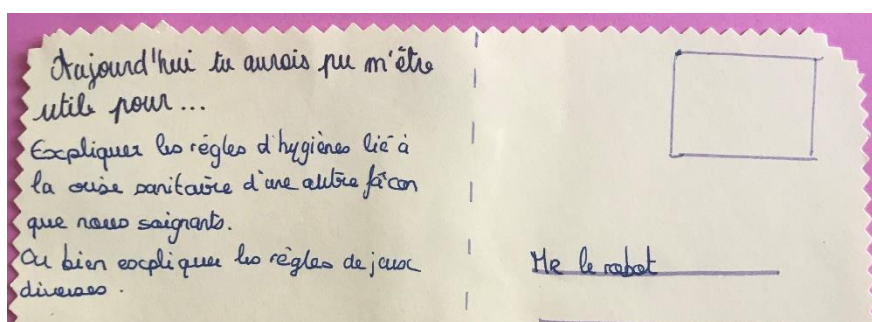 Aujourd'hui tu aurais pu m'être
utile pour...
Expliquer les règles d'hygiènes lié à
la crise sanitaire d'une autre façon
que nous soignants.
Ou bien expliquer les règles de jeux
diverses.
Mr le robot